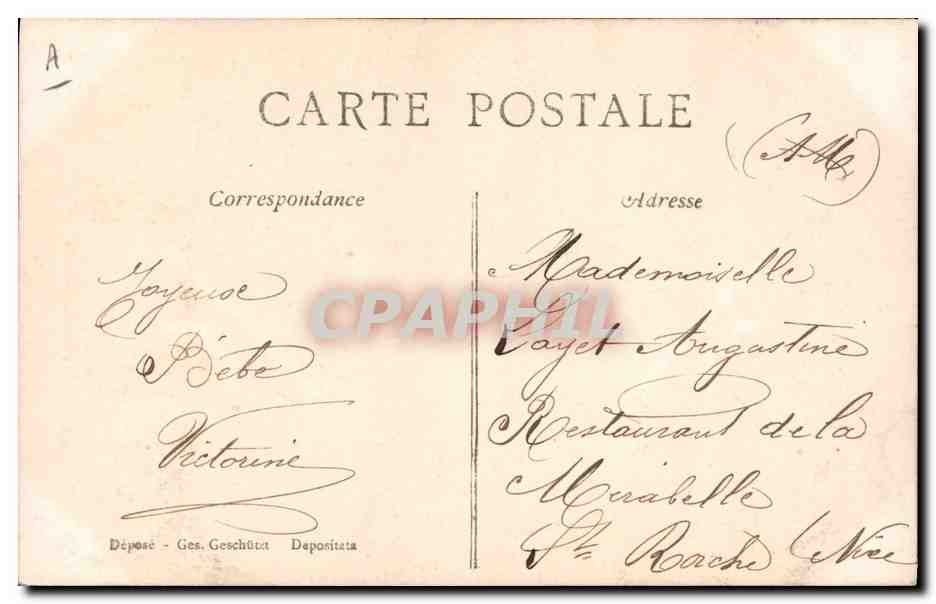 A
CARTE POSTALE
(A-M)
Correspondance
Adresse
Joyeuse
Bébe
Victorine
Déposé - Ges. Geschützt Depositata
Mademoiselle
Layet Augustine
Restaurant de la
Mirabelle
St Roche (Nice
CPAPHIL